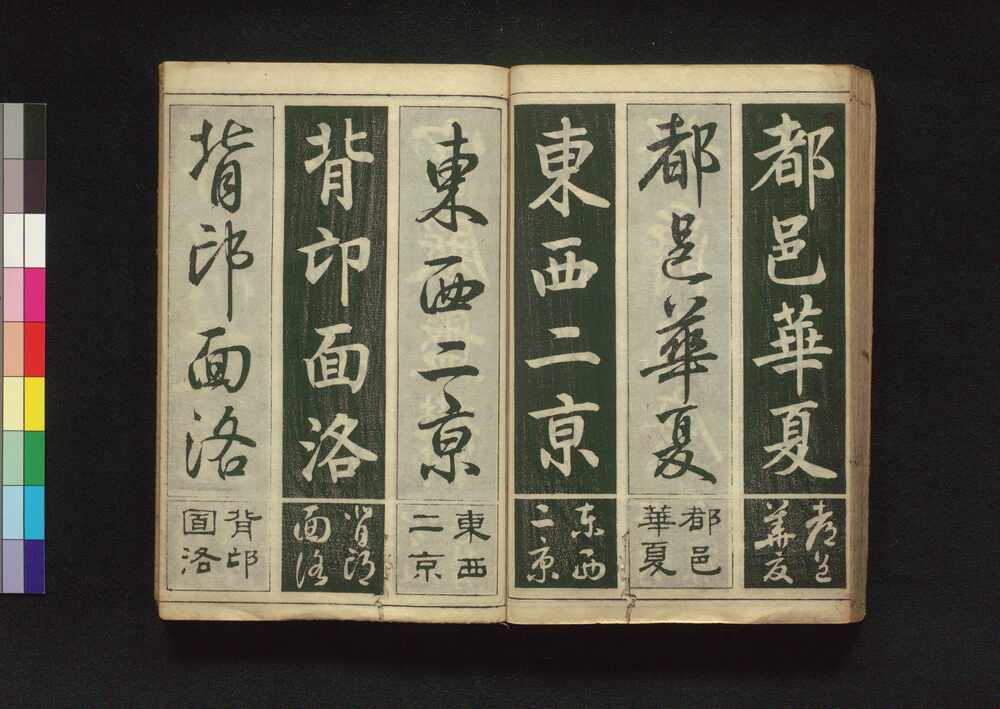 都邑華夏
都邑
華夏
都邑華夏
都邑
華夏
東西二京
东西
二京
東西二京
東西
二京
背邙面洛
背邙
面洛
背邙面洛
背邙
面洛